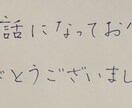 話になってお
どうございまし